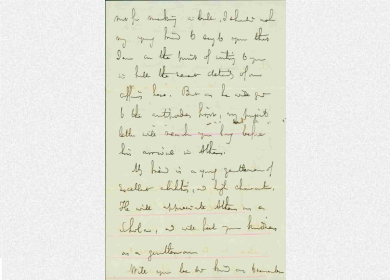 not for making a bull, I should ask
my young friend to say to you that
I am on the point of writing to you
in full the recent details of our
affairs here. But as he will go
to the antipodes first, my
letter will reach you long before
his arrival in Athens.
My friend is a young gentleman of
excellent abilities, and high character.
He will appreciate Athens as a
scholar, and will feel your kindness
as a gentleman
Will you be so kind as